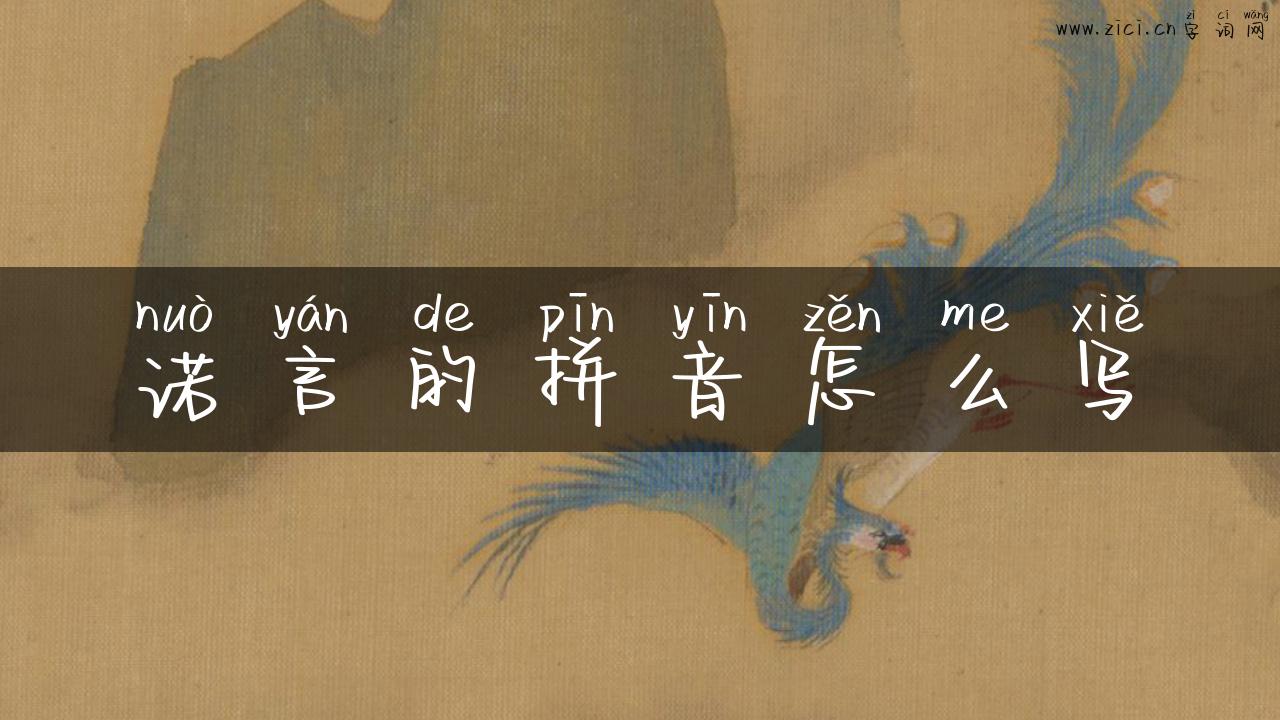 zì cí wǎng
www.zici.cn字词网
nuò yán de pīn yīn zěn me xiě
诺言的拼音怎么写